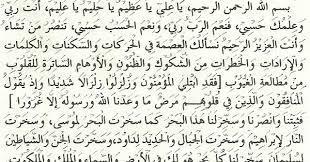 بسم الله الرحمن الرحيم، يَا عَلِيُّ يَا عَظِيمُ يَا حَلِيمُ يَا عَلِيمُ، أَنْتَ رَبِّي
وَعِلْمُكَ حَسْبِي، فَنِعْمَ الرَّبُّ رَبِّي، وَنِعْمَ الْحَسْبُ حَسْبِي، تَنْصُرُ مَنْ تَشَاءُ
وَأَنْتَ الْعَزِيزُ الرَّحِيمُ نَسْأَلُكَ الْعِصْمَةَ فِي الْحَرَكَاتِ وَالسَّكَنَاتِ وَالْكَلِمَاتِ
وَالْإِرَادَاتِ وَالْخَطَرَاتِ مِنَ الشُّكُوكِ وَالظُّنُونِ وَالْأَوْهَامِ السَّاتِرَةِ لِلْقُلُوبِ
عَنْ مُطَالَعَةِ الْغُيُوبِ ﴿فَقَدِ ابْتُلِيَ الْمُؤْمِنُونَ وَزُلْزِلُوا زِلْزَالًا شَدِيدًا وَإِذْ يَقُولُ
الْمُنَافِقُونَ وَالَّذِينَ فِي قُلُوبِهِمْ مَرَضٌ مَا وَعَدَنَا اللهُ وَرَسُولُهُ إِلَّا غُرُورًا﴾
فَثَبِّتْنَا وَانْصُرْنَا وَسَخِّرْ لَنَا هَذَا الْبَحْرَ كَمَا سَخَّرْتَ الْبَحْرَ لِمُوسَى، وَسَخَّرْتَ
النَّارَ لِإِبْرَاهِيمَ وَسَخَّرْتَ الْجِبَالَ وَالْحَدِيدَ لِدَاوُدَ، وَسَخَّرْتَ الْجِنَّ وَالشَّيَاطِينَ
لِسُلَيْمَانَ وَسَخِّرْ لَنَا كُلَّ بَحْرٍ هُوَ لَكَ فِي الْأَرْضِ وَالسَّمَاءِ وَالْمُلْكِ وَالْمَلَكُوتِ